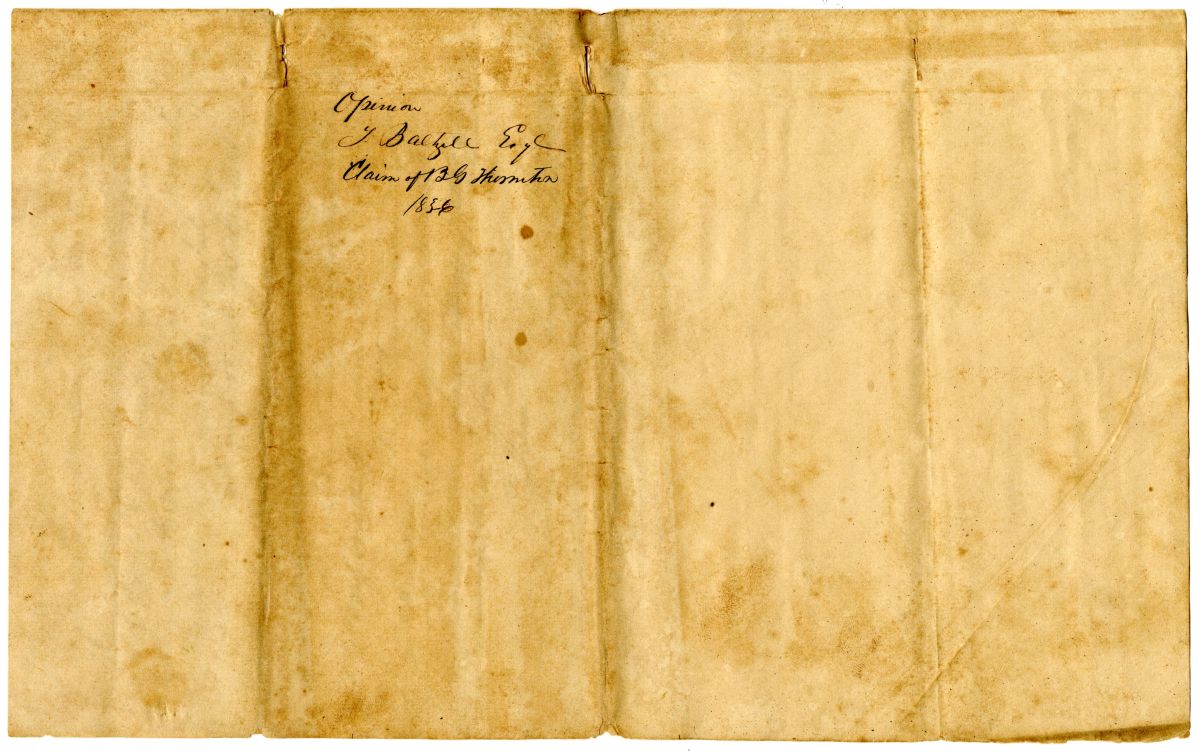 Opinion
T. Baltzell Esq
Claim of B G Thornton
1836